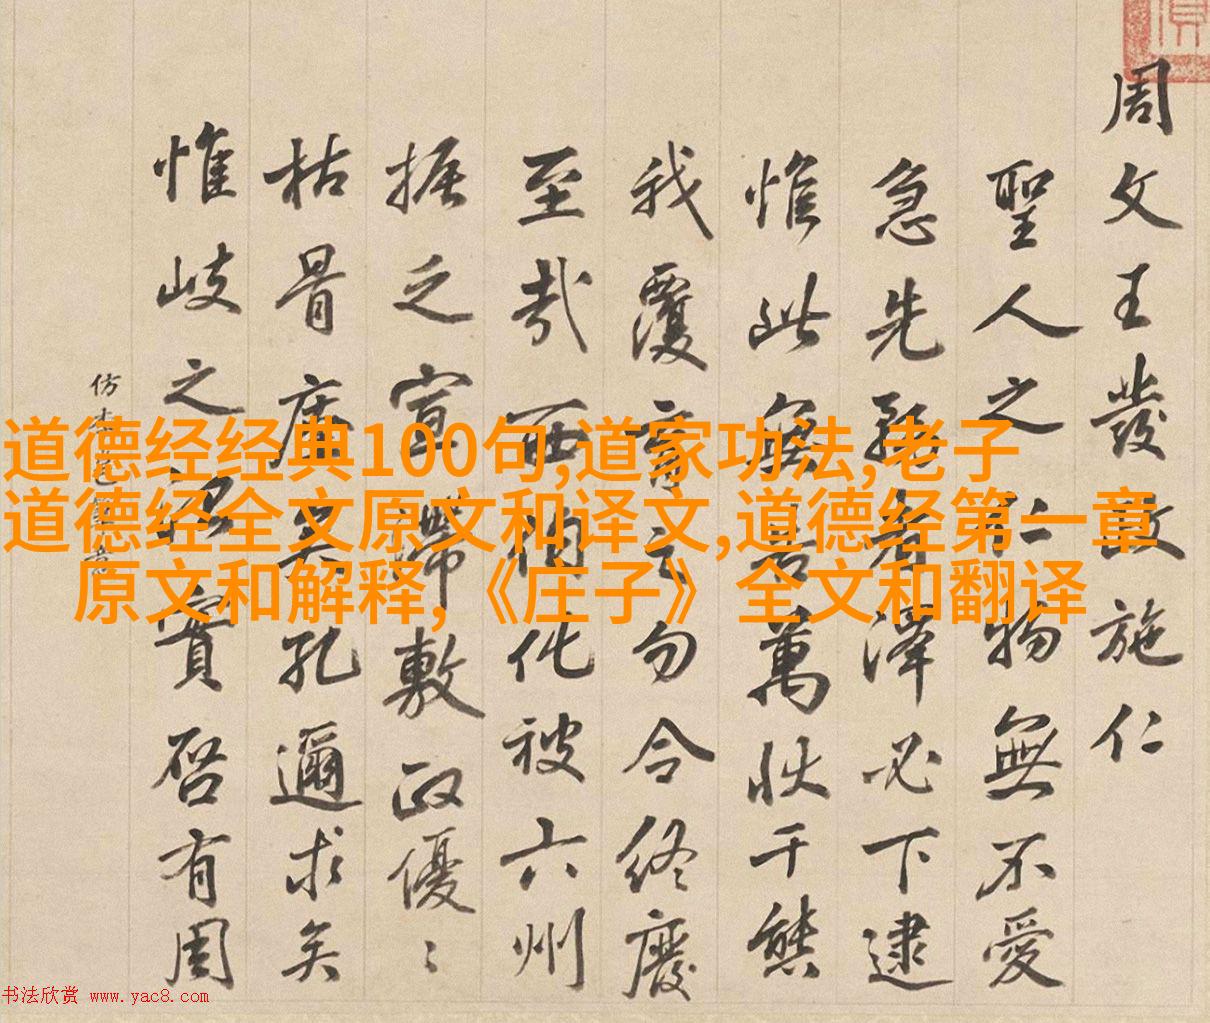 周文王發政施仁
聖人之仁物無不愛
急先者澤必下逮
惟此無告萬狀千態
我覆育之勿令終廢
至哉西伯化被六州
振之宣滯敷政優〻
枯骨矣孔邇求矣
惟岐之實啓有周
仿
道德经经典100句,道家功法,老子
道德经全文原文和译文,道德经第一章
原文和解释,《庄子》全文和翻译
书法欣赏 www.yac8.com